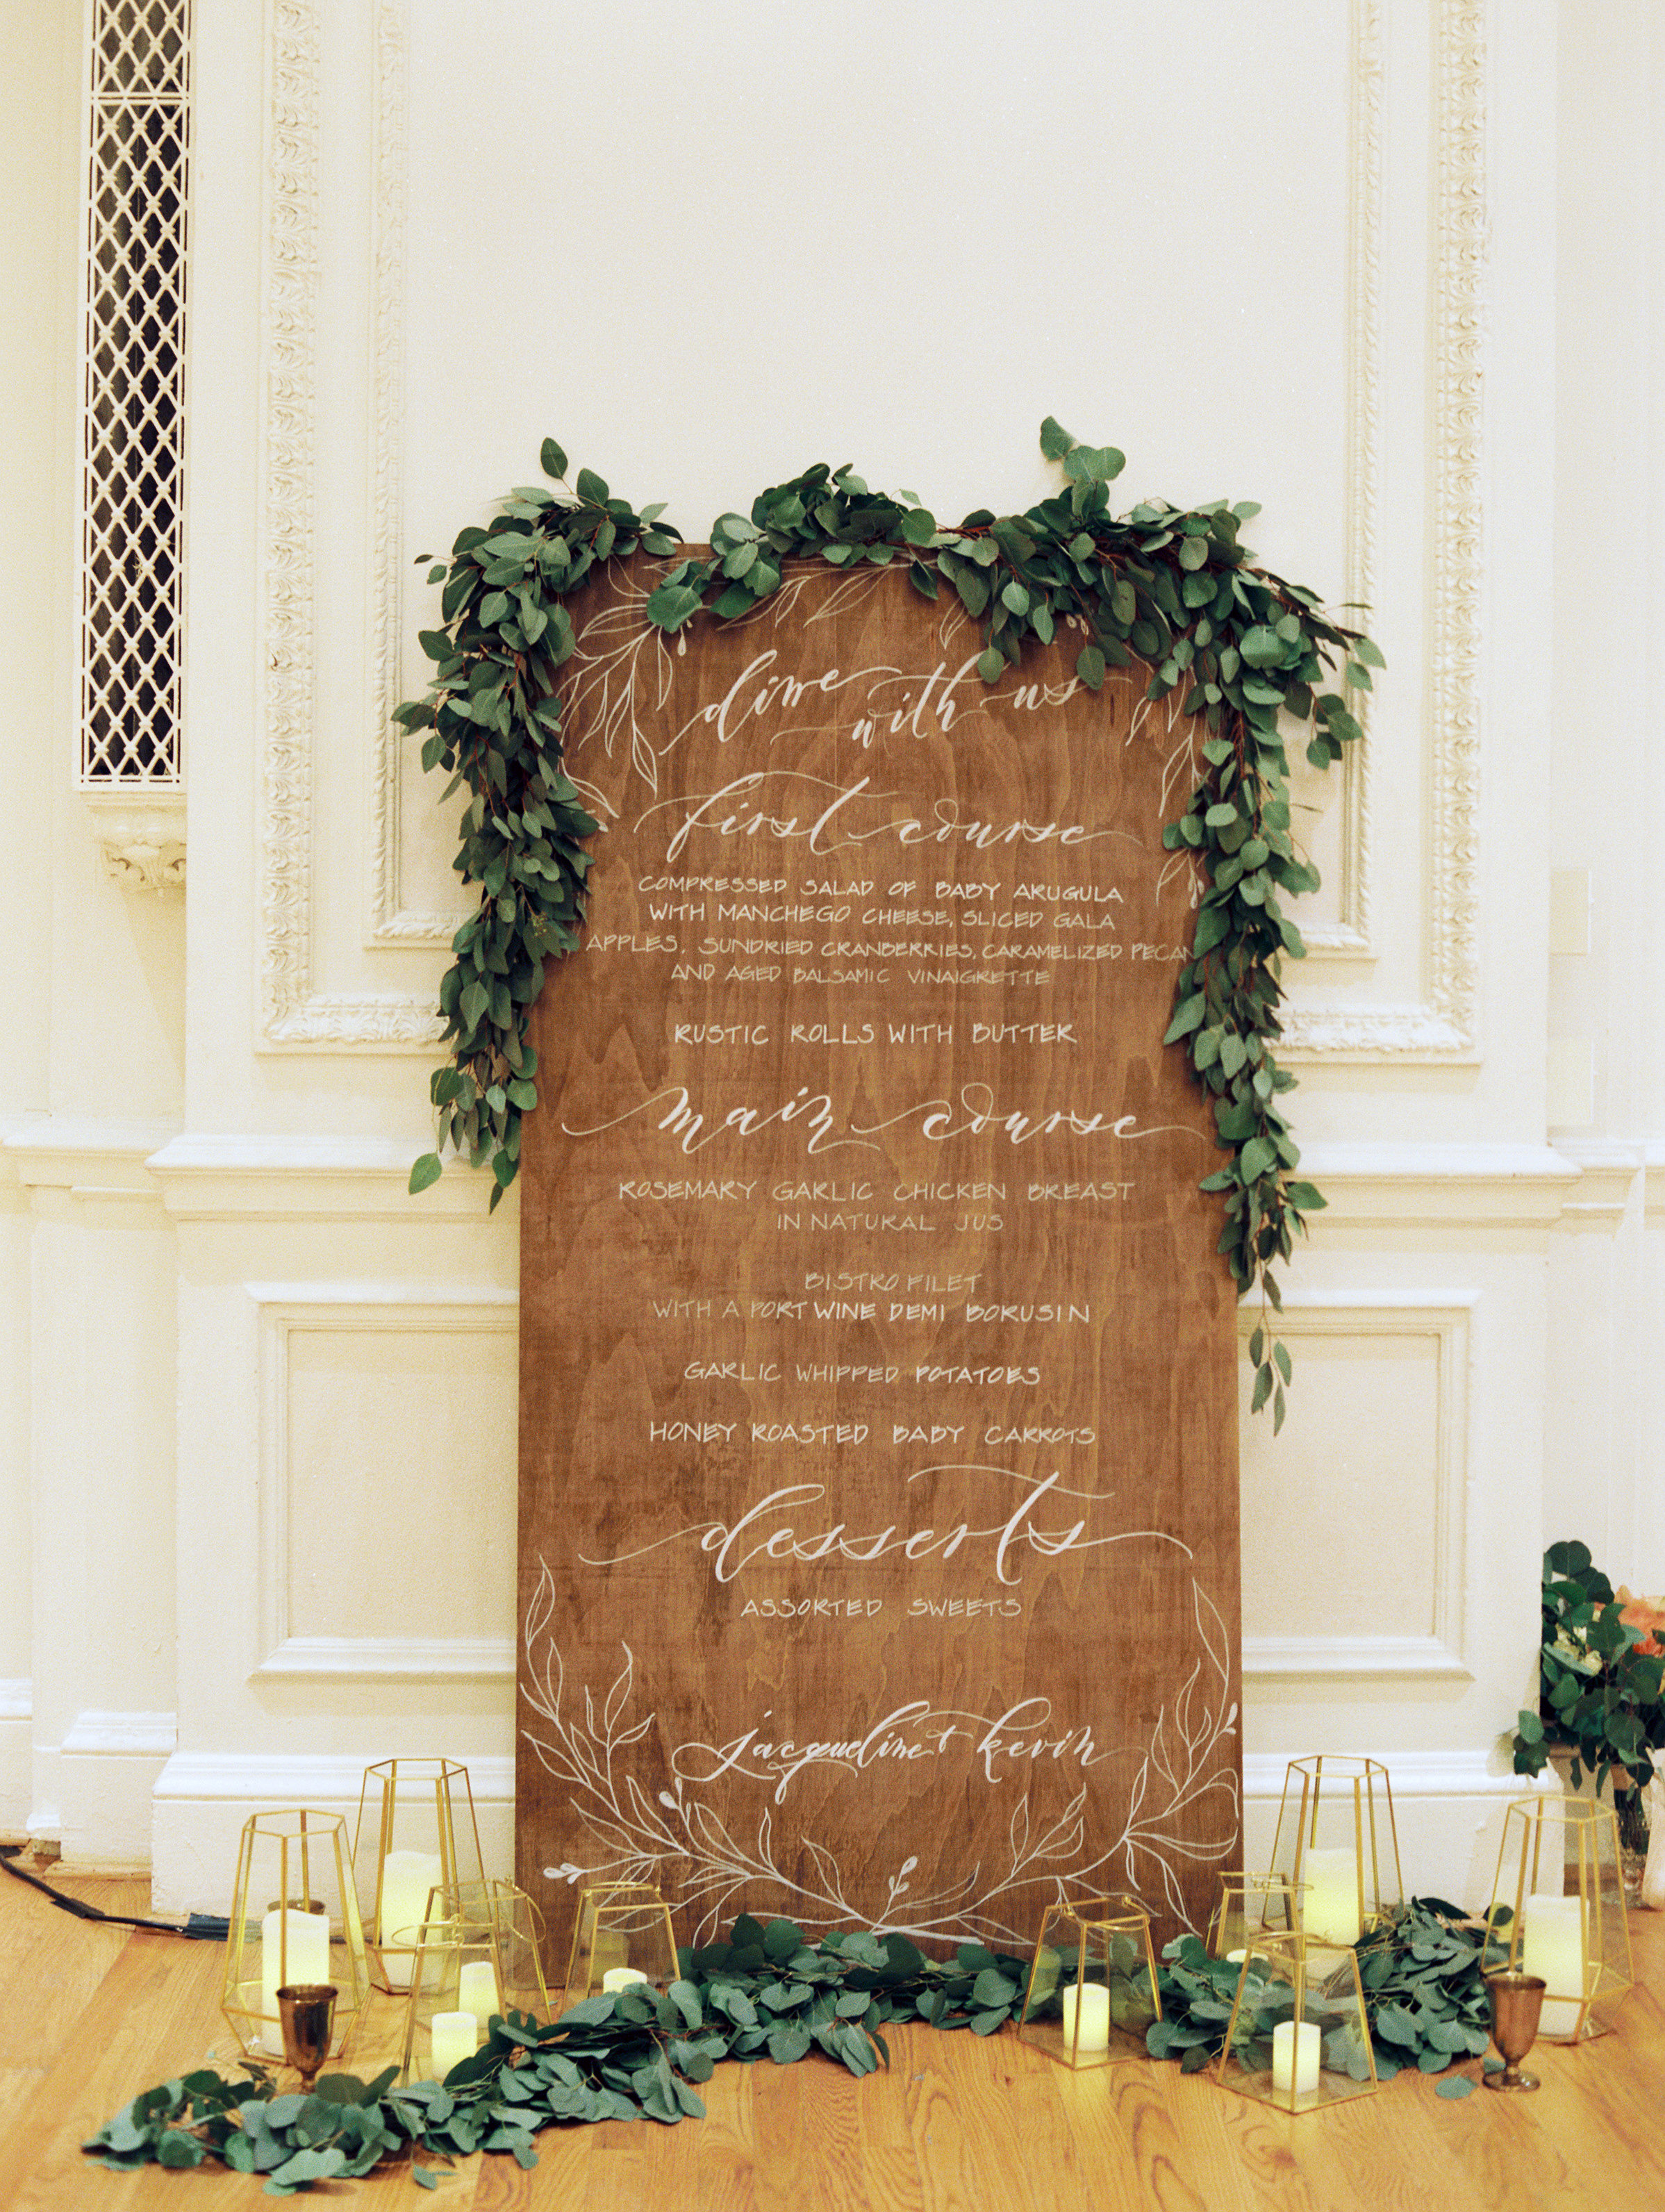 dine with us
first course
COMPRESSED SALAD OF BABY ARUGULA
WITH MANCHEGO CHEESE, SLICED GALA
APPLES, SUNDRIED CRANBERRIES, CARAMELIZED PECAN
AND AGED BALSAMIC VINAIGRETTE
RUSTIC ROLLS WITH BUTTER
main course
ROSEMARY GARLIC CHICKEN BREAST
IN NATURAL JUS
BISTRO FILET
WITH A PORT WINE DEMI BORUSIN
GARLIC WHIPPED POTATOES
HONEY ROASTED BABY CARROTS
desserts
ASSORTED SWEETS
jacqueline + kevin